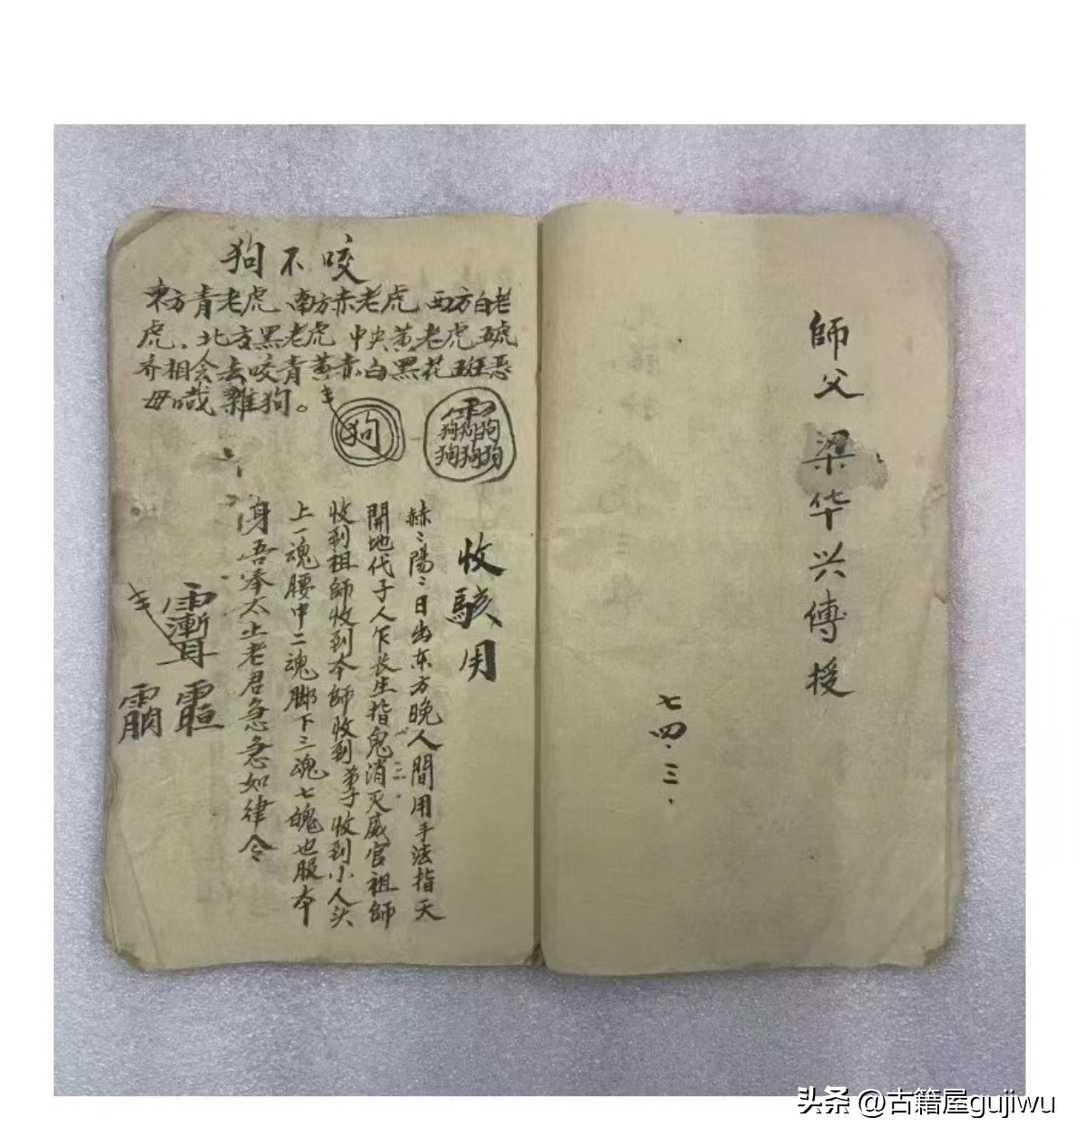 師父梁华兴傳授
七四.三.
狗不咬
東方青老虎 南方赤老虎 西方白老
虎.北方黑老虎 中央黄老虎五虎
齐相会去咬青黄赤白黑花班恶
毋哉雜狗。
狗
狗狗狗狗狗
收駭用
赫〻陽〻日出东方晚人間用手法指天
開地代子人乍長生指鬼消灭威官祖師
收到祖師收到本師收到弟子收到小人头
上一魂腰中二魂脚下三魂七魄也服本
身吾奉太上老君急急如律令
头条 @古籍屋gujiwu